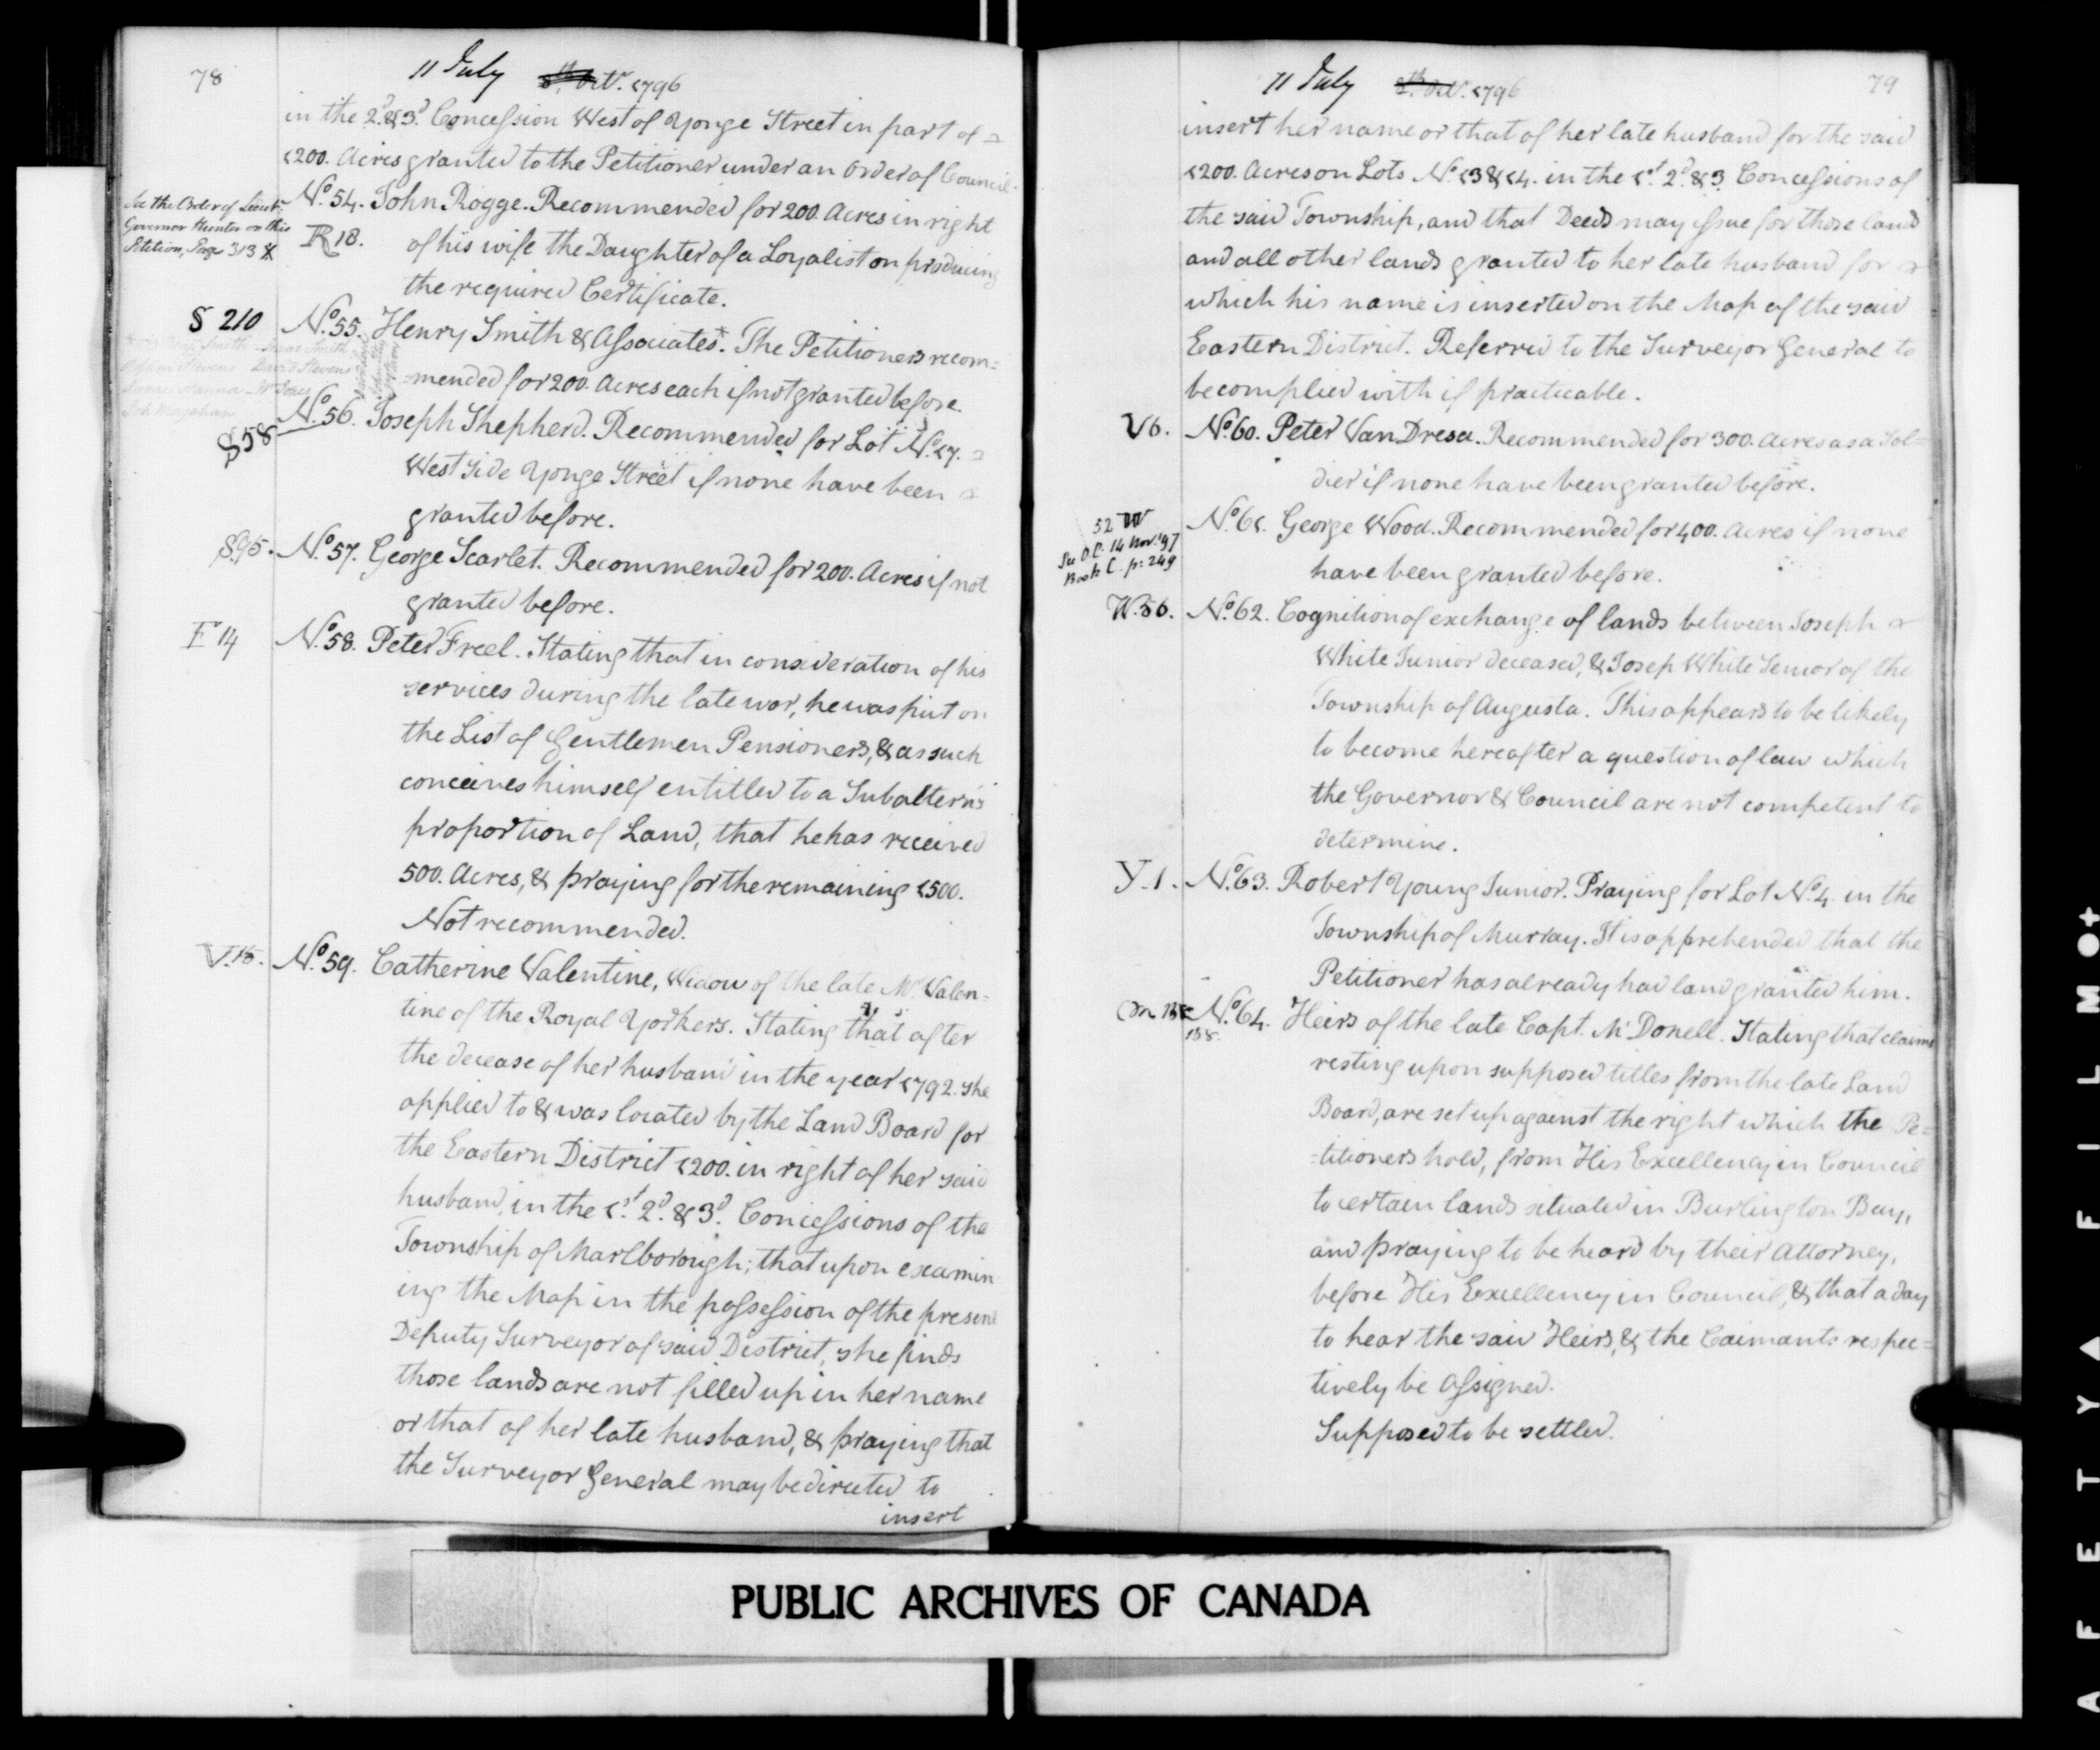 78
11 July 8th Octr. 1796
in the 2d. & 3d. Concession West of Yonge Street in part of
1200. Acres granted to the Petitioner under an Order of Council.
See the Order of Lieut.
Governor Hunter on this
Petition, Page 313
No. 54. John Rogge. Recommended for 200. Acres in right
R 18. of his wife the Daughter of a Loyalist on producing
the required Certificate.
S 210 No. 55. Henry Smith & Associates. The Petitioners recom=
=mended for 200. Acres each if not granted before.
Smith Isaac Smith
Stevens David Stevens
S 58 No. 56. Joseph Shepherd. Recommended for Lot No. 17.
West Side Yonge Street if none have been
granted before.
S.95. No. 57. George Scarlet. Recommended for 200. Acres if not
granted before.
F 14 No. 58. Peter Freel. Stating that in consideration of his
services during the late war, he was put on
the List of Gentlemen Pensioners, & as such
conceives himself entitled to a Subaltern's
proportion of Land, that he has received
500. Acres, & praying for the remaining 1500.
Not recommended.
V.15. No. 59. Catherine Valentine, Widow of the late Mr. Valen=
tine of the Royal Yorkers. Stating that after
the decease of her husband in the year 1792. she
applied to & was located by the Land Board for
the Eastern District 1200. in right of her said
husband, in the 1st. 2d. & 3d. Concessions of the
Township of Marlborough; that upon examin
ing the Map in the possession of the present
Deputy Surveyor of said District, she finds
those lands are not filled up in her name
or that of her late husband, & praying that
the Surveyor General may be directed to
insert
79
11 July 8th. Octr. 1796
insert her name or that of her late husband for the said
1200. Acres on Lots No. 13 & 14. in the 1st. 2d. & 3 Concessions of
the said Township, and that Deeds may issue for those lands
and all other lands granted to her late husband for
which his name is inserted on the Map of the said
Eastern District. Referred to the Surveyor General to
be complied with if practicable.
V 6. No. 60. Peter Van Dresa. Recommended for 300. Acres as a Sol=
dier if none have been granted before.
52 W
See O.C. 14 Nov. '97
Book C. p: 249
No. 61. George Wood. Recommended for 400. Acres if none
have been granted before.
W.56. No. 62. Cognition of exchange of lands between Joseph
White Junior deceased, & Josep White Senior of the
Township of Augusta. This appears to be likely
to become hereafter a question of law which
the Governor & Council are not competent to
determine.
Y.1. No. 63. Robert Young Junior. Praying for Lot No. 4. in the
Township of Murray. It is apprehended that the
Petitioner has already had land granted him.
138. No. 64. Heirs of the late Capt. McDonell. Stating that claims
resting upon supposed titles from the late Land
Board, are set up against the right which the Pe=
=titioners hold, from His Excellency in Council
to certain lands situated in Burlington Bay,
and praying to be heard by their Attorney,
before His Excellency in Council, & that a day
to hear the said Heirs, & the Caimants respec=
tively be assigned.
Supposed to be settled.
PUBLIC ARCHIVES OF CANADA
SAFETY FILM